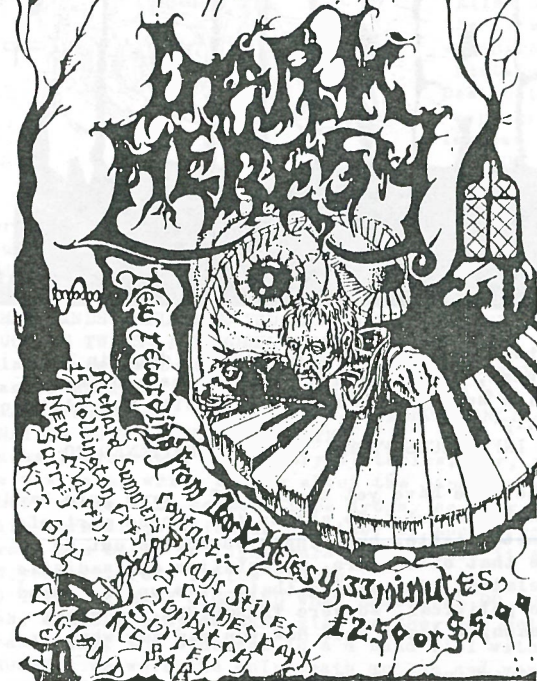 DARK
HERESY
New recording from Dark Heresy, 33 minutes,
£2:50 or $5:00
contact:-
Richard Summers
15 Hollington Cres
NEW Malden
Surrey
KT3
ENGLAND
Hans Stiles
2 Cranes Park
Surbiton
Surrey